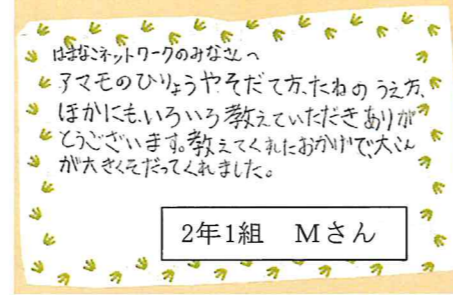 はまなこネットワークのみなさんへ
アマモのひりょうやそだて方、たねのうえ方、
ほかにも、いろいろ教えていただきありが
とうございます。教えてくれたおかげで、大こん
が大きくそだってくれました。
2年1組 Mさん